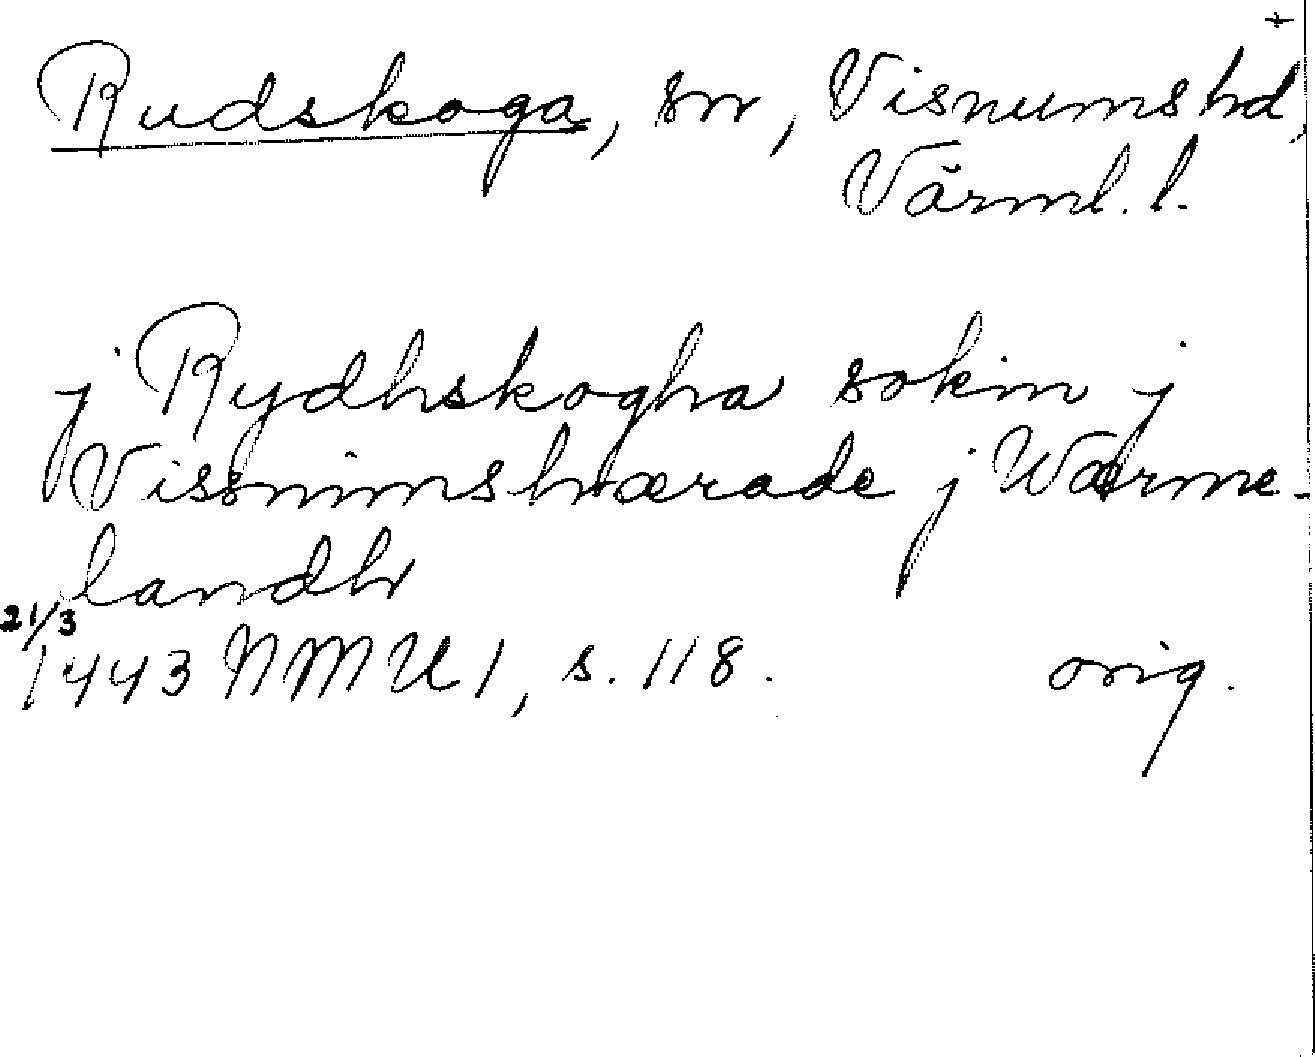 +
Rudskoga, sn, Visnums hd,
Värml. l.
j Rydhskogha sokin j
Vissnims hærade j Wærme-
landh
21/3
1443 NMU 1, s. 118. orig.